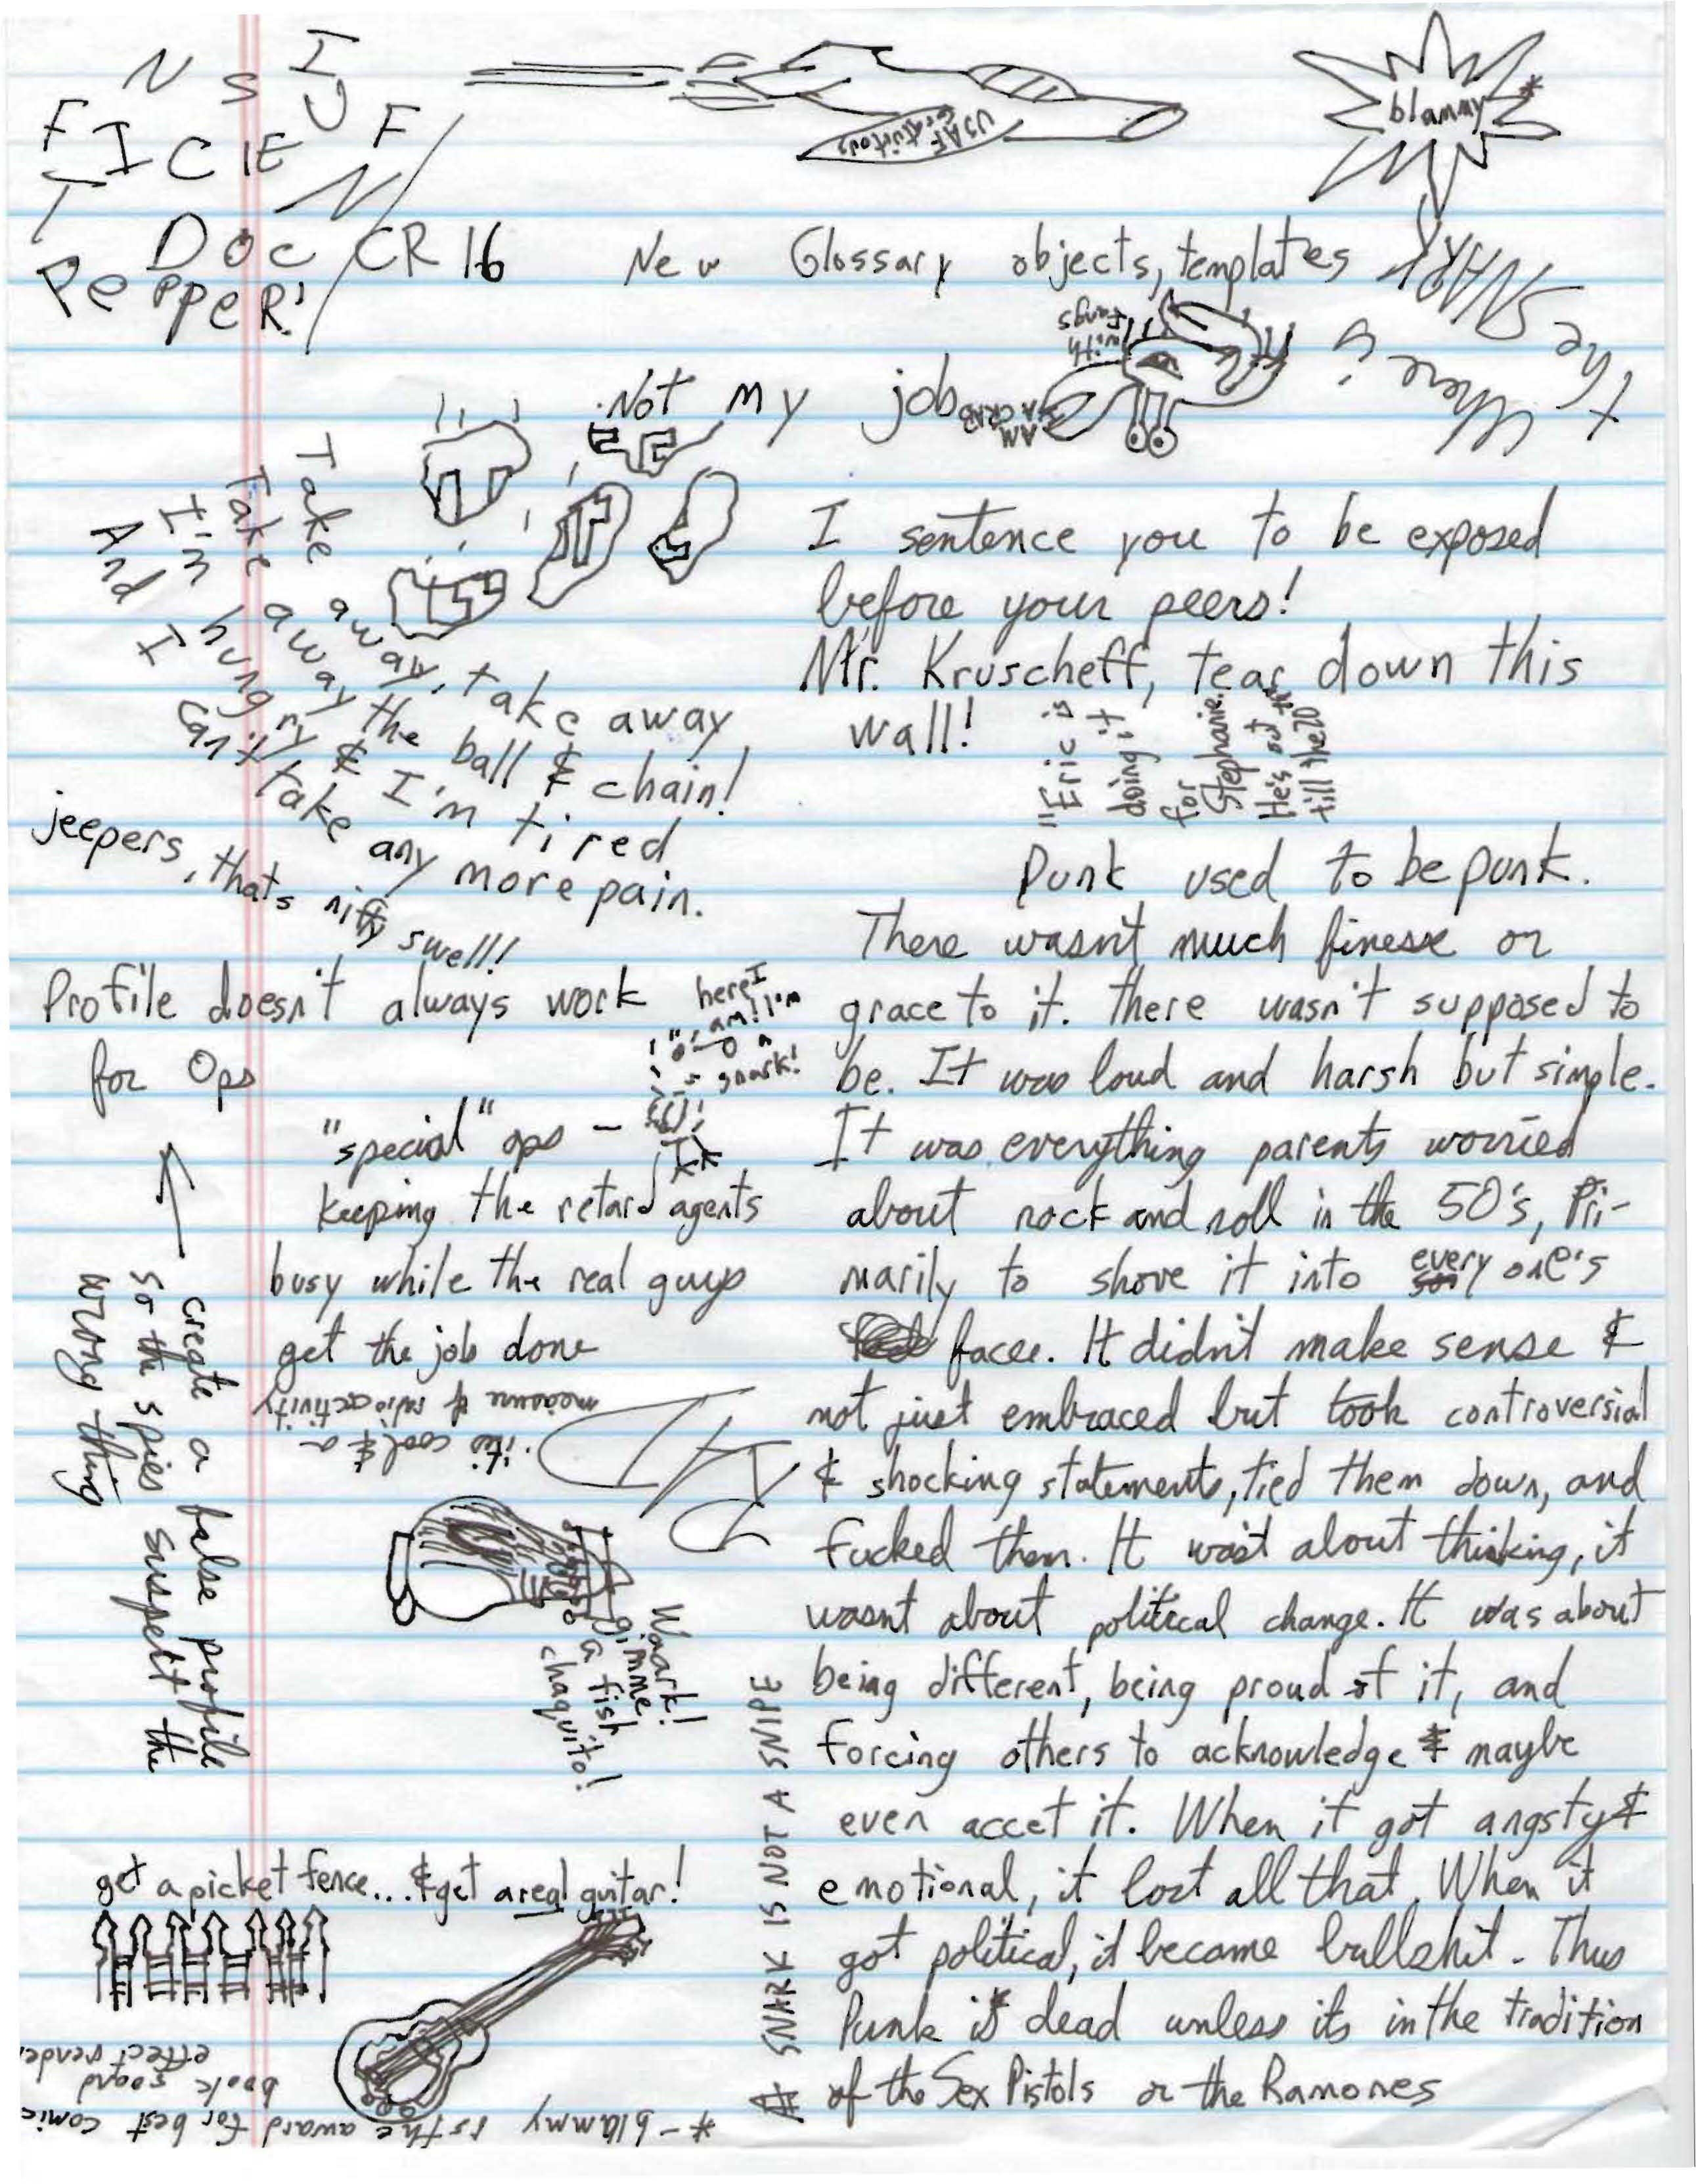 INSUFFICIENT
DOC PEPPER!
USAF
Gratuitous
blammy*
CR 16 New Glossary objects, templates
Where's
the SNARK?
with
fangs
I AM
A CRAB
Not my job
Take away, take away
Take away the ball & chain!
I'm hungry & I'm tired
And I can't take any more pain.
jeepers, thats nifty swell!
I sentence you to be exposed
before your peers!
Mr. Kruscheff, tear down this
wall!
"Eric is
doing it
for
Stephanie.
He's out
till the 20
Profile doesn't always work
for Ops
here I
am! I'm
a
snark!
"special" ops –
keeping the retard agents
busy while the real guys
get the job done
← create a false profile
so the spies suspect the
wrong thing
it's cool & a
measure of radioactivity
Wark!
gimme
a fish
chaquito!
get a picket fence... & get a real guitar!
*– blammy is the award for best comic
book sound
effect
# SNARK IS NOT A SNIPE
Punk used to be punk.
There wasn't much finesse or
grace to it. There wasn't supposed to
be. It was loud and harsh but simple.
It was everything parents worried
about rock and roll in the 50's, Pri-
marily to shove it into every one's
faces. It didn't make sense &
not just embraced but took controversial
& shocking statements, tied them down, and
fucked them. It wasn't about thinking, it
wasnt about political change. It was about
being different, being proud of it, and
forcing others to acknowledge & maybe
even accet it. When it got angsty &
emotional, it lost all that. When it
got political, it became bullshit. Thus
Punk is dead unless its in the tradition
of the Sex Pistols or the Ramones